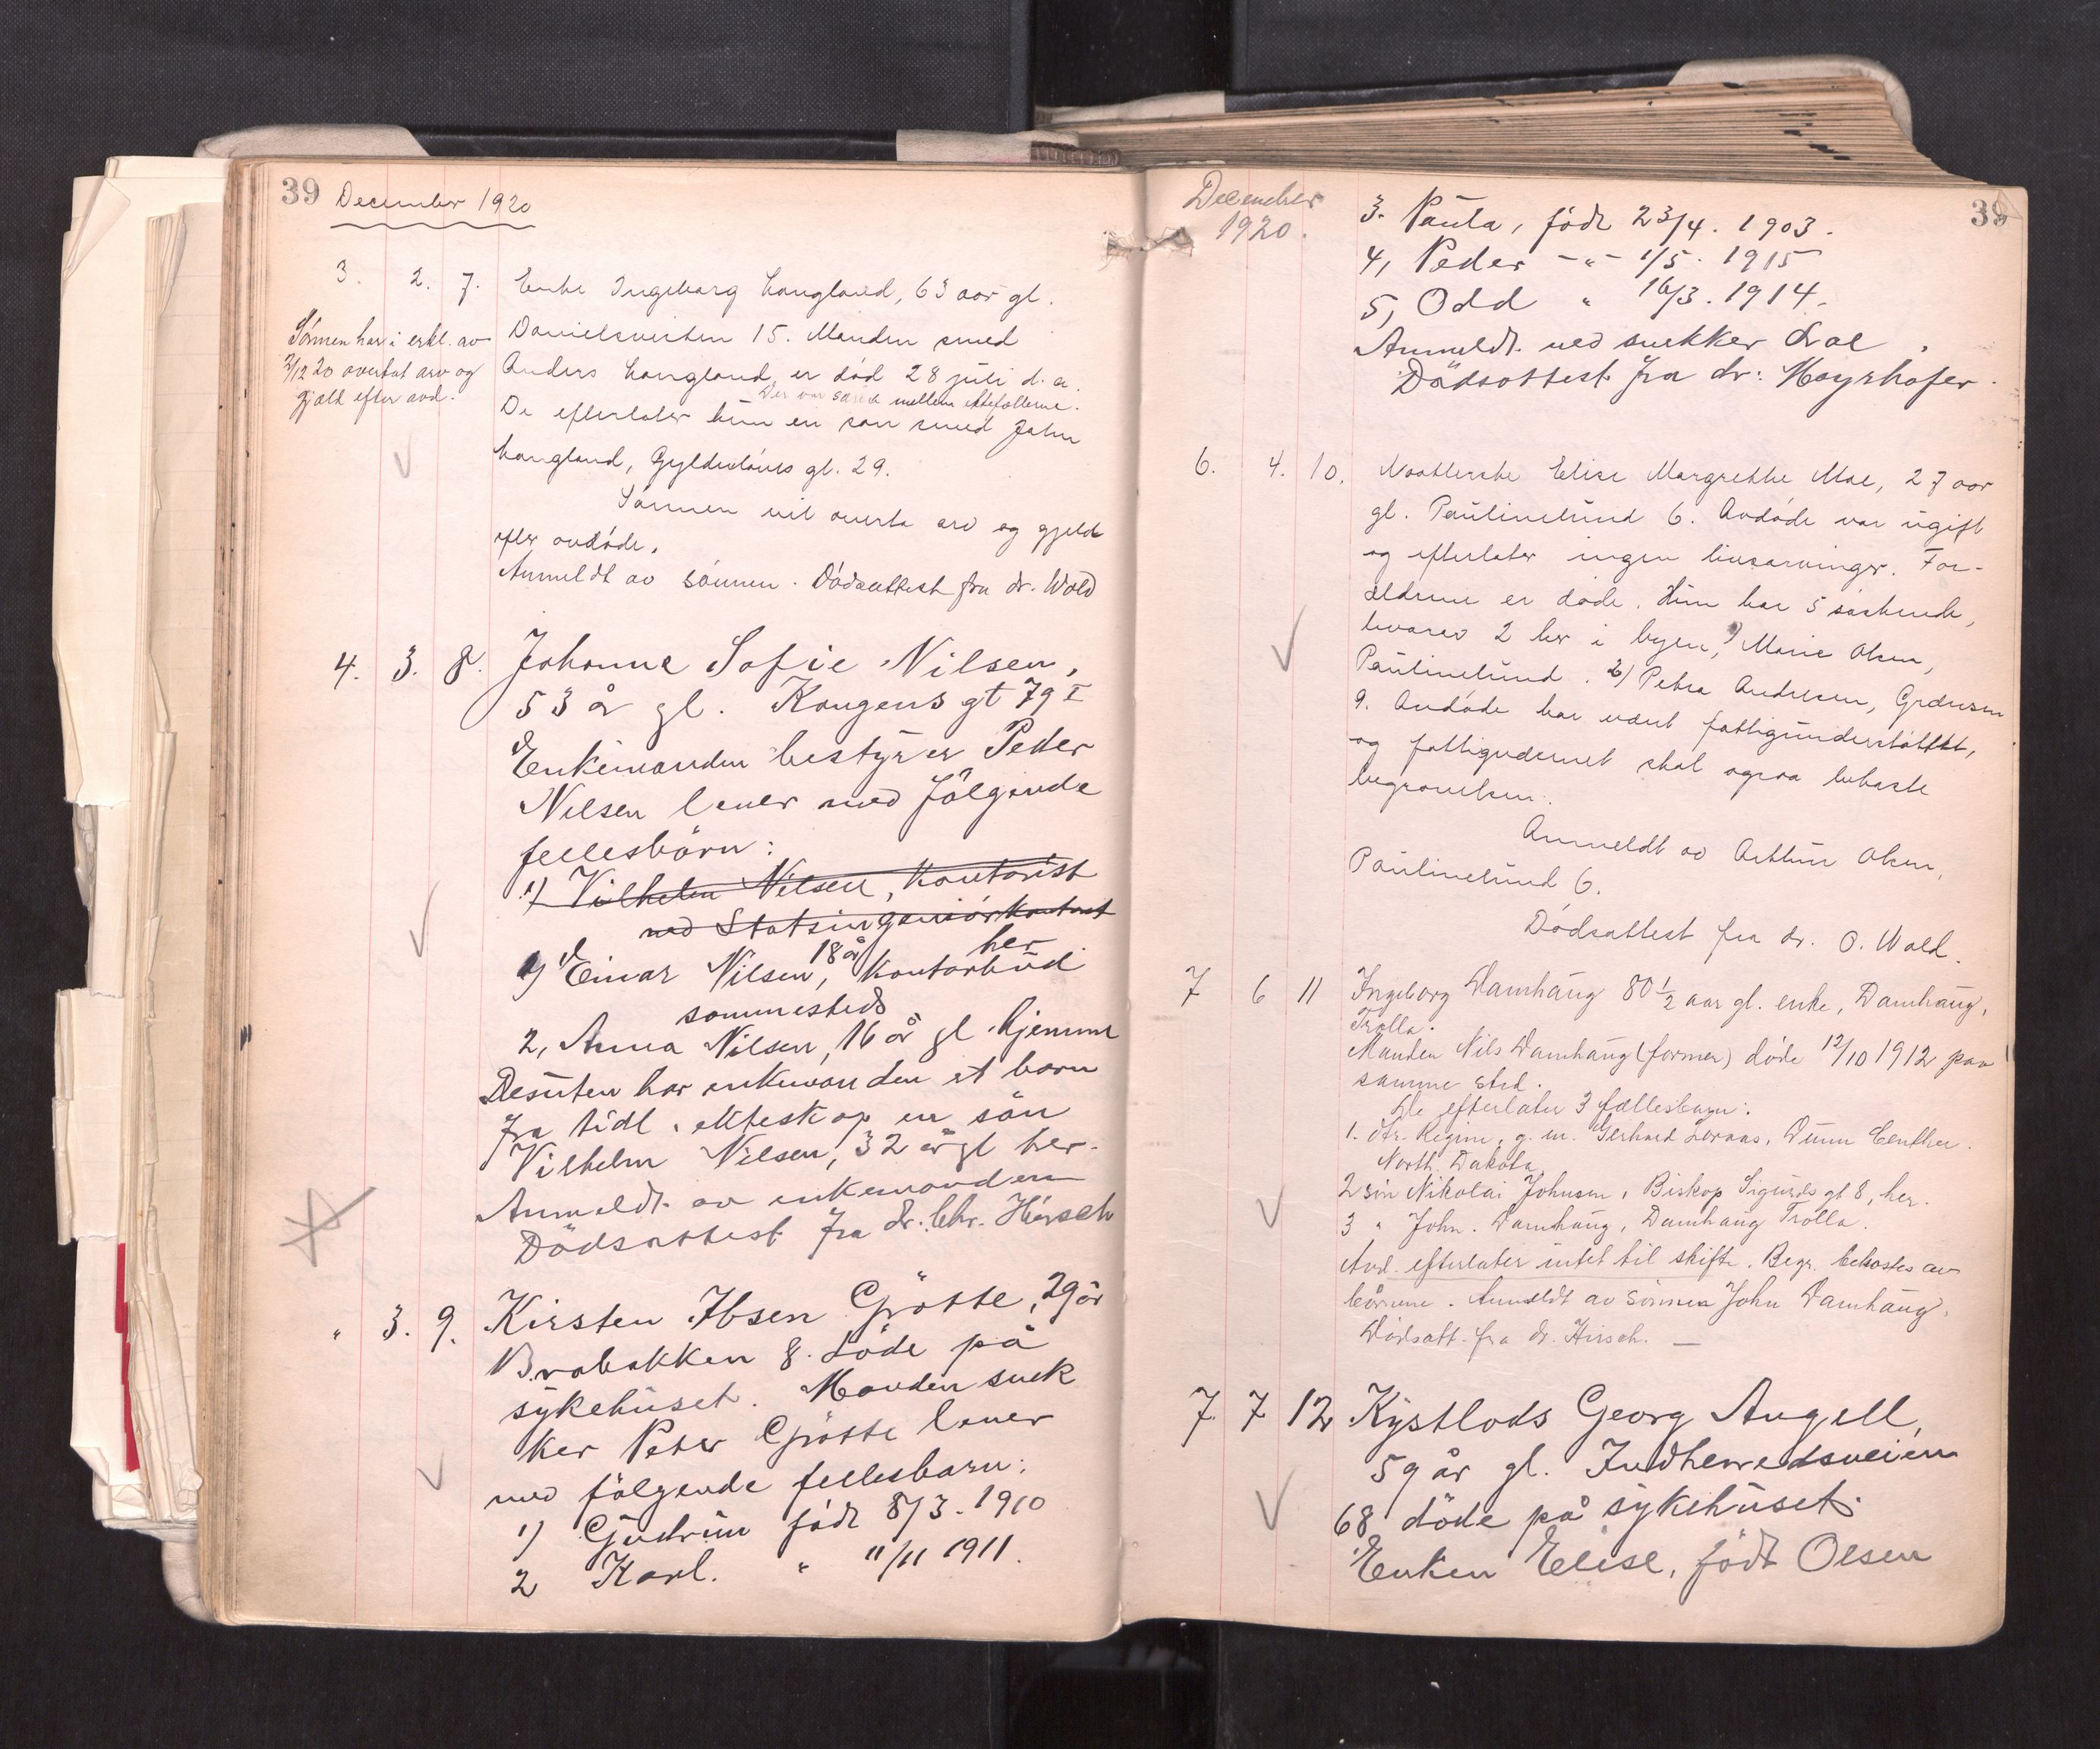 39 December 1920
3. 2. 7. Enke Ingeborg Langland, 63 aar gl.
Danielsveiten 15. Manden smed
Anders Langland, er död 28 juli d.a.
Der var særeie mellem ektefællerne.
De efterlater kun en sön smed John
Langland, Gyldenlöves gt. 29.
Sönnen vil overta arv og gjeld
efter avdöde.
Anmeldt av sönnen. Dödsattest fra dr. Wold
Sönnen har i erkl. av
2/12 20 overtat arv og
gjæld efter avd.
4. 3. 8. Johanne Sofie Nilsen,
53 år gl. Kongens gt 79 I
Enkemanden bestyrer Peder
Nilsen lever med følgende
fellesbörn:
1) Vilhelm Nilsen, Kontorist
ved Statsingeniörkontoret
1) Einar Nilsen, 18 år, Kontorbud her
sammesteds
2, Anna Nilsen, 16 år gl hjemme
Desuten har enkemanden et barn
fra tidl. ekteskap en sön
Vilhelm Nilsen, 32 år gl her.
Anmeldt av enkemanden
Dödsattest fra dr. Chr. Hirsch
" 3. 9. Kirsten Ibsen Gjötte, 29 år
Brobakken 8. döde på
sykehuset. Manden snek
ker Peter Gjötte lever
med fölgende fellesbarn:
1) Gudrun född 8/3. 1910
2 Karl. " 11/11 1911.
December
1920.
39
3. Paula, född 23/4. 1903.
4, Peder -"- 1/5. 1915
5, Odd " 16/3. 1914.
Anmeldt ved snekker
Dödsattest fra dr: Mayrhofer.
6. 4. 10. Elise Margrethe Moe, 27 aar
gl. Paulinelund 6. Avdöde var ugift
og efterlater ingen livsarvinger. For-
ældrene er döde. Hun har 5 söskende,
hvorav 2 her i byen, 1) Marie Olsen,
Paulinelund. 2) Petra Andresen,
9. Avdöde har været fattigunderstöttet,
og fattigvæsenet skal ogsaa bekoste
begravelsen.
Anmeldt av Arthur Olsen,
Paulinelund 6.
Dödsattest fra dr. O. Wold.
7 6 11 Ingeborg Damhaug 80 1/2 aar gl. enke, Damhaug,
Trolla.
Manden Nils Damhaug (former) döde 12/10 1912 paa
samme sted.
De efterlater 3 fællesbarn:
1. dtr. Regine, g. m. Gerhard Loraas, Dunn Centher.
North Dakota.
2 sön Nikolai Johnsen, Biskop Sigurds gt 8, her.
3 " John. Damhaug, Damhaug Trolla.
Avd. efterlater intet til skifte. Begr. bekostes av
börnene. Anmeldt av sönnen John Damhaug.
Dödsatt. fra dr. Hirsch. —
7. 7 12 Kystlods Georg Angell,
59 år gl. Indherredsveien
68 döde på sykehuset.
Enken Elise, född Olsen